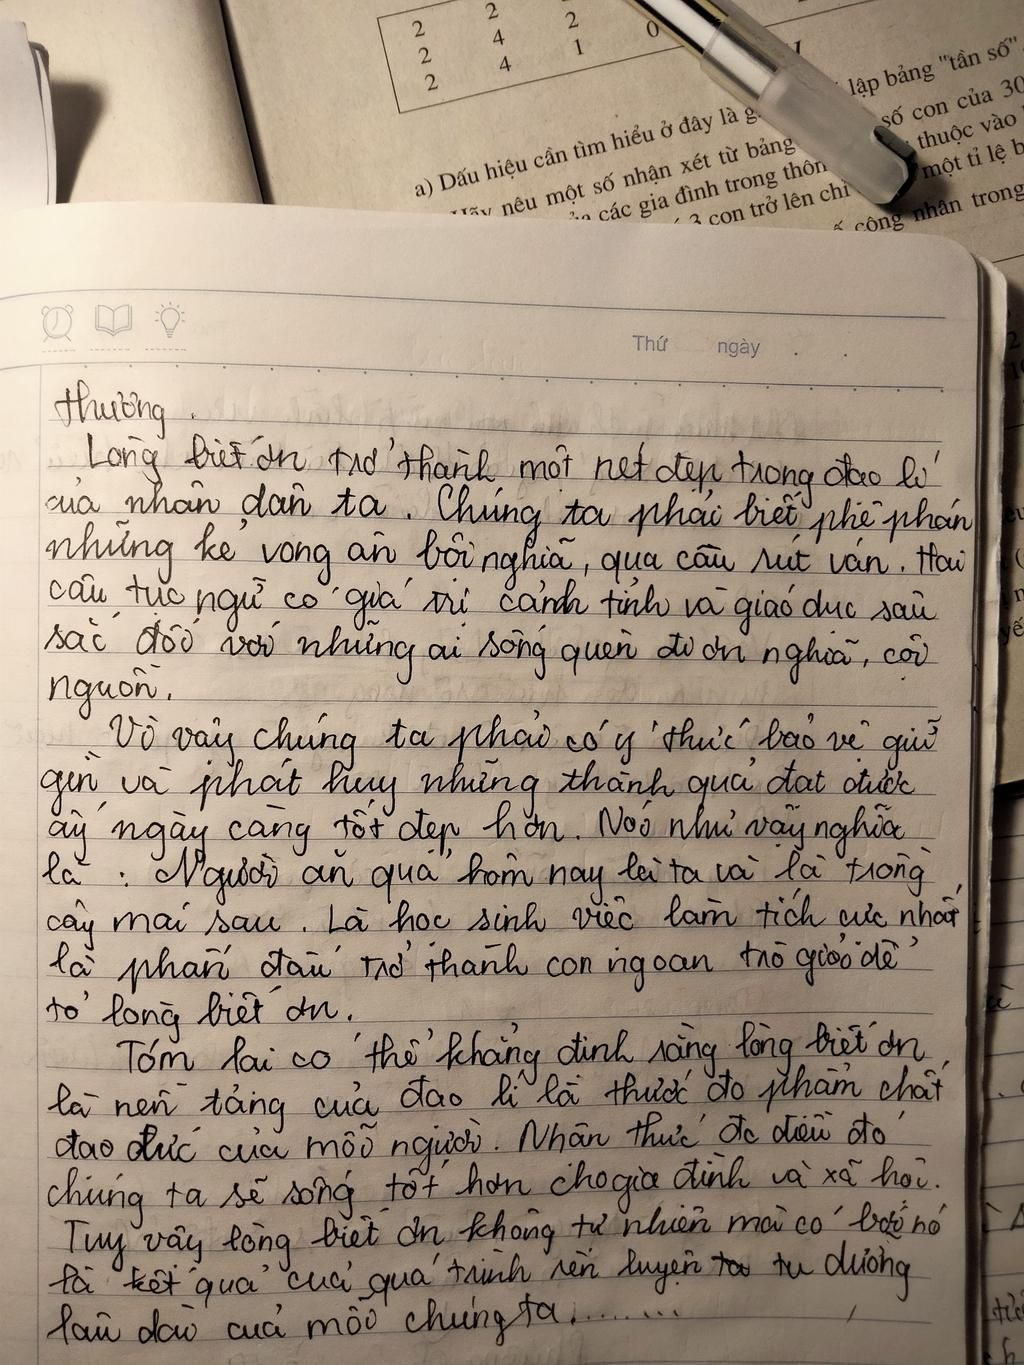 2 2
2 4 2
2 4 1 0
lập bảng "tần số"
a) Dấu hiệu cần tìm hiểu ở đây là g
số con của 30
Hãy nêu một số nhận xét từ bảng
thuộc vào
của các gia đình trong thôn
một tỉ lệ b
3 con trở lên chỉ
công nhân trong
Thứ ngày . .
thường .
Lòng biết ơn trở thành một nét đẹp trong đạo lí
của nhân dân ta . Chúng ta phải biết phê phán
những kẻ vong ân bội nghĩa, qua cầu rút ván. Hai
câu tục ngữ có giá trị cảnh tỉnh và giáo dục sâu
sắc đối với những ai sống quên đi ơn nghĩa, cội
nguồn.
Vì vậy chúng ta phải có ý thức bảo vệ giữ
gìn và phát huy những thành quả đạt được
ấy ngày càng tốt đẹp hơn. Nói như vậy nghĩa
là : Người ăn quả hôm nay là ta và là trồng
cây mai sau . Là học sinh việc làm tích cực nhất
là phấn đấu trở thành con ngoan trò giỏi để
tỏ lòng biết ơn.
Tóm lại có thể khẳng định rằng lòng biết ơn
là nền tảng của đạo lí là thước đo phẩm chất
đạo đức của mỗi người. Nhận thức đc điều đó
chúng ta sẽ sống tốt hơn cho gia đình và xã hội.
Tuy vậy lòng biết ơn không tự nhiên mà có bởi nó
là kết quả của quá trình rèn luyện tu dưỡng
lâu dài của mỗi chúng ta.......